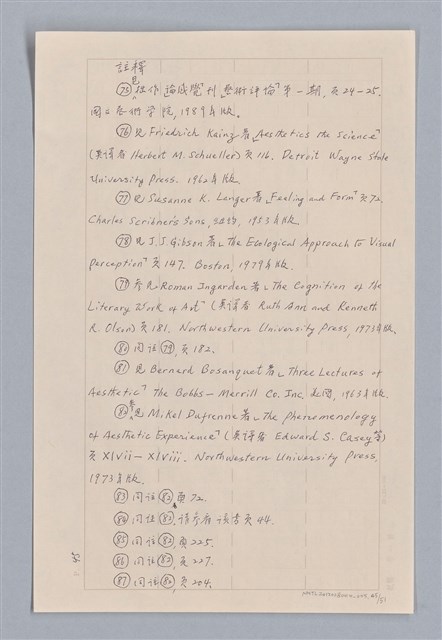 註釋
㊄ 見拙作「論感覺」刊「藝術評論」第一期,頁24-25.
國立藝術學院,1989年版。
76 見 Friedrich Kainz 著「Aesthetics the Science」
(英譯者 Herbert M. Schueller) 頁116. Detroit Wayne State
University Press. 1962年版.
77 見 Susanne K. Langer 著「Fealing and Form」頁72.
Charles Scribner's Sons, 紐約, 1953年版.
78 見 J.J. Gibson 著「The Ecological Approach to Visual
Perception」頁147. Boston, 1979年版.
79 參見 Roman Ingarden 著「The Cognition of the
Literary Work of Art」(英譯者 Ruth Ann and Kenneth
R. Olson) 頁181. Northwestern University Press, 1973年版.
80 同註79, 頁182.
81 見 Bernard Bosanquet 著「Three Lectures of
Aesthetic」The Bobbs-Merrill Co. Inc. 美國, 1963年版.
82 參見 Mikel Dufrenne 著「The Phenomenology
of Aesthetic Experience」(英譯者 Edward S. Casey 等)
頁 XIvii-XIviii. Northwestern University Press,
1973年版.
83 同註82, 頁72.
84 同註82, 請參看該書頁44.
85 同註82, 頁225.
86 同註82, 頁227.
87 同註82, 頁204.
45